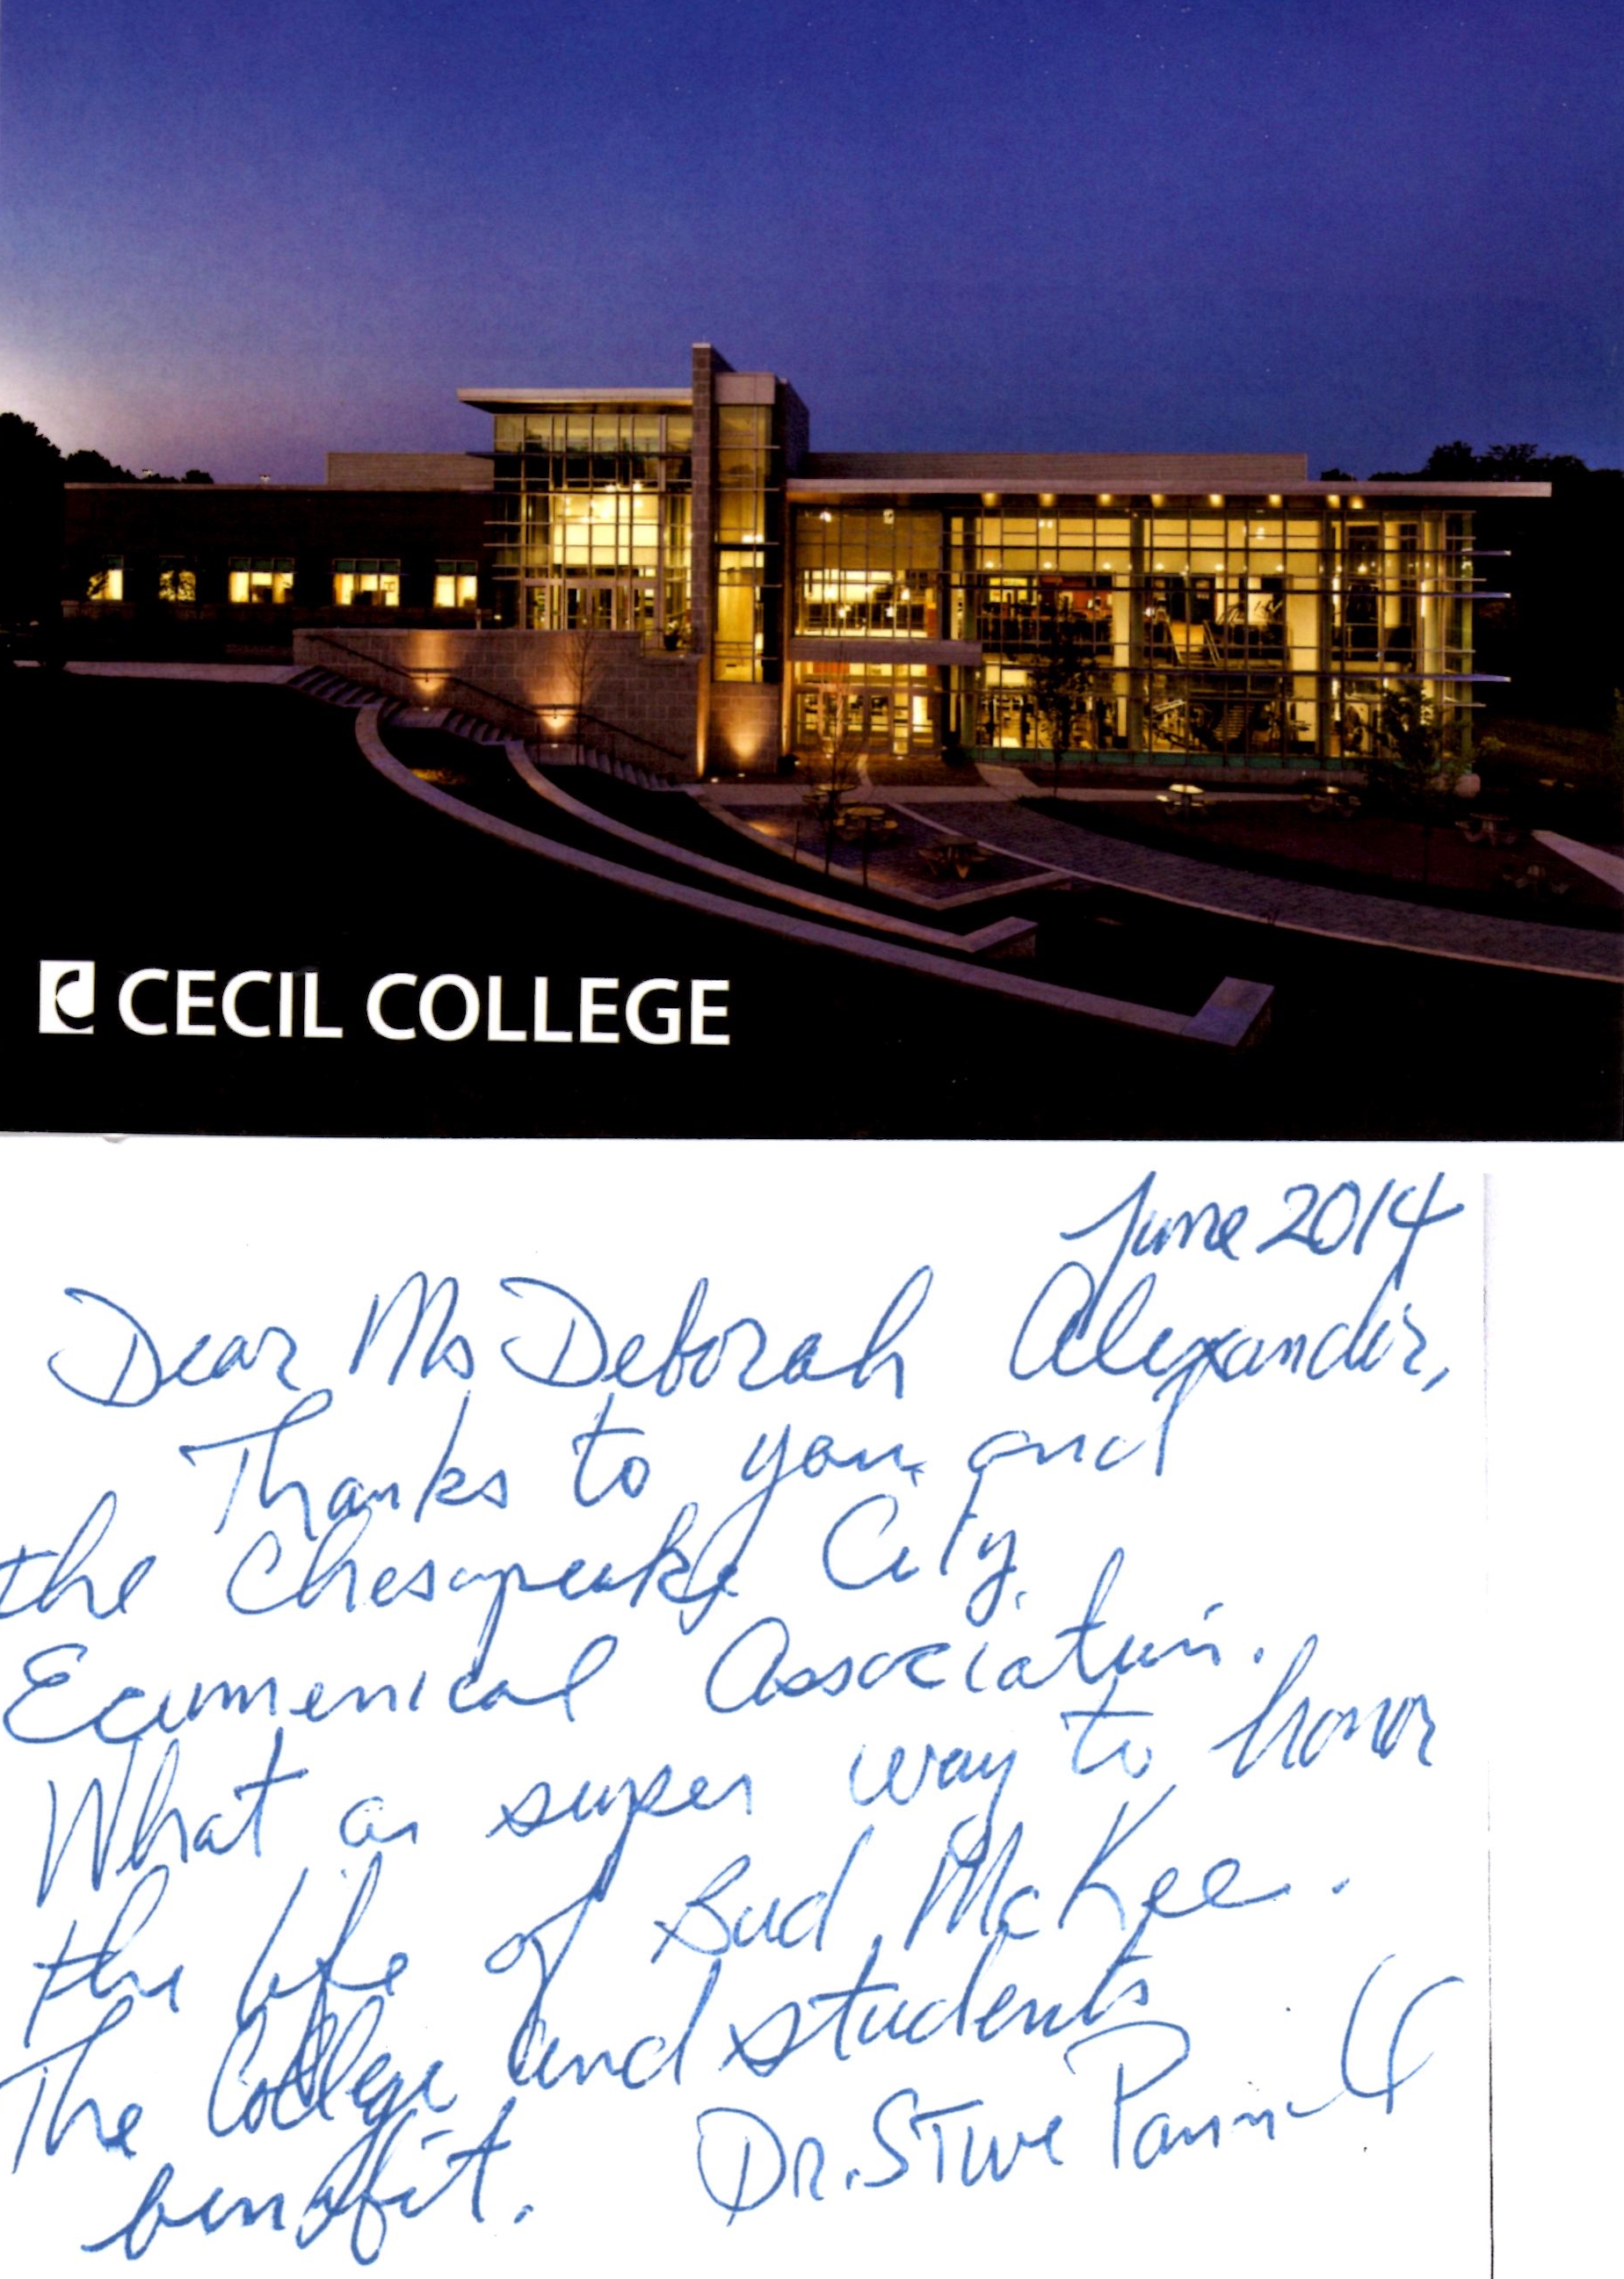 CECIL COLLEGE
June 2014
Dear Ms Deborah Alexander,
Thanks to you and
the Chesapeake City
Ecumenical Association.
What a super way to honor
the life of Bud McKee.
The College and students
benefit. Dr. Steve Pannill